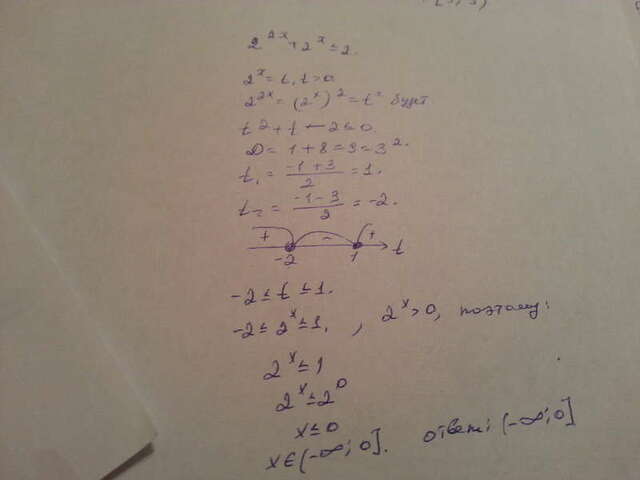 2^{2x} + 2^x ≤ 2.
2^x = t, t > 0
2^{2x} = (2^x)^2 = t^2
t^2 + t - 2 ≤ 0.
D = 1 + 8 = 9 = 3^2.
t_1 = \frac{-1+3}{2} = 1.
t_2 = \frac{-1-3}{2} = -2.
+ - + t
-2 1
-2 ≤ t ≤ 1.
-2 ≤ 2^x ≤ 1, , 2^x > 0, поэтому:
2^x ≤ 1
2^x ≤ 2^0
x ≤ 0
x ∈ (-∞; 0]. ответ: (-∞; 0]